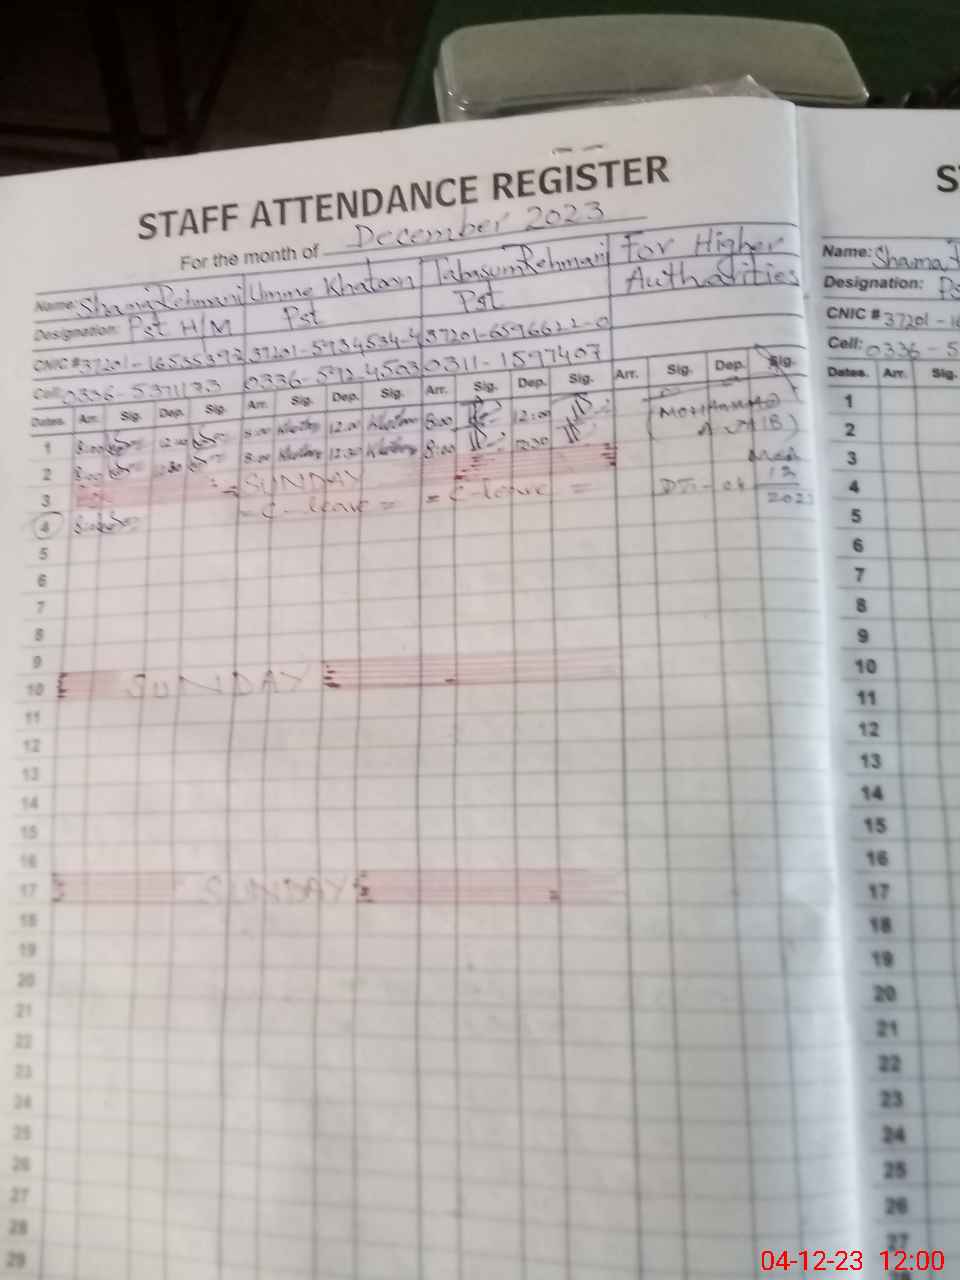 STAFF ATTENDANCE REGISTER
For the month of December 2023
Name: Shama Rehmani Umme Khatoon Tabasum Rehmani For Higher Autharities
Designation: Pst H/M Pst Pst
CNIC # 37201-16535392 37201-5934534-4 37201-6596622-0
Cell: 0336-5371133 0336-592-4503 0311-1597407
Dates. Arr. Sig. Dep. Sig. Arr. Sig. Dep. Sig. Arr. Sig. Dep. Sig. Arr. Sig. Dep. Sig.
1 8:00 12:00 8:00 Khatoon 12:00 Khatoon 8:00 12:00
2 8:00 12:30 8:00 Khatoon 12:30 Khatoon 8:00 12:30
3 SUNDAY
4 8:00 = C-leave = = C-leave = DT:-04 12 2023
5
6
7
8
9
10 SUNDAY
11
12
13
14
15
16
17 SUNDAY
18
19
20
21
22
23
24
25
26
27
28
29
S
Name: Shama
Designation: Ps
CNIC # 37201-16
Cell: 0336-5
Dates. Arr. Sig.
1
2
3
4
5
6
7
8
9
10
11
12
13
14
15
16
17
18
19
20
21
22
23
24
25
26
27
04-12-23 12:00